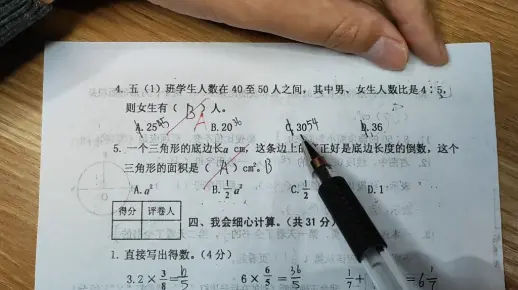 4. 五（1）班学生人数在 40 至 50 人之间，其中男、女生人数比是 4∶5，
则女生有（ B ）人。
A. 25 45 B. 20 36 C. 30 54 D. 36
5. 一个三角形的底边长 a cm，这条边上的 正好是底边长度的倒数，这个
三角形的面积是（ A ）cm²。B
A. a² B. 1/2 a² C. 1/2 D. 1
得分 评卷人
四、我会细心计算。（共 31 分）
1. 直接写出得数。（4 分）
3.2 × 3/8 = 6/5 6 × 6/5 = 36/5 1/7 + = 6 1/7